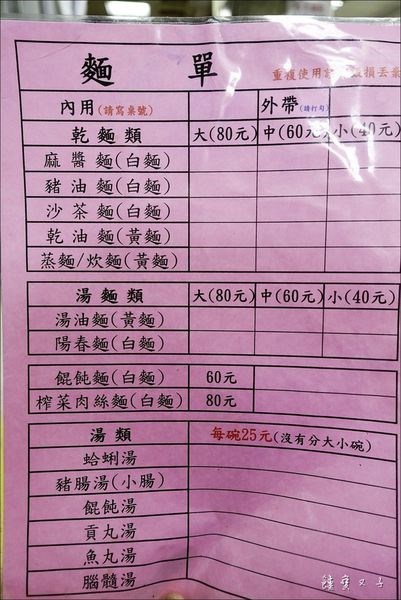 麵 單
重複使用
損丟棄
內用(請寫桌號) 外帶(請打勾)
乾麵類 大(80元) 中(60元) 小(40元)
麻醬麵(白麵)
豬油麵(白麵)
沙茶麵(白麵)
乾油麵(黃麵)
蒸麵/炊麵(黃麵)
湯麵類 大(80元) 中(60元) 小(40元)
湯油麵(黃麵)
陽春麵(白麵)
餛飩麵(白麵) 60元
榨菜肉絲麵(白麵) 80元
湯類 每碗25元(沒有分大小碗)
蛤蜊湯
豬腸湯(小腸)
餛飩湯
貢丸湯
魚丸湯
腦髓湯